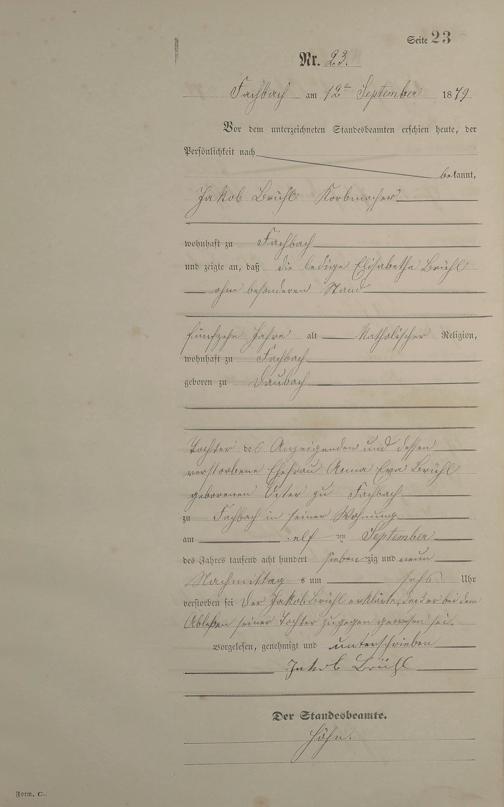 Seite 23
Nr. 23.
Fachbach am 12ten September 1879
Vor dem unterzeichneten Standesbeamten erschien heute, der
Persönlichkeit nach
bekannt,
Jakob Brühl Korbmacher
wohnhaft zu Fachbach
und zeigte an, daß die ledige Elisabetha Brühl
ohne besonderen Stand
fünfzehn Jahre alt katholischer Religion,
wohnhaft zu Fachbach
geboren zu Daubach
Tochter des Anzeigenden und dessen
verstorbene Ehefrau Anna Eva Brühl
geborenen zu Fachbach
zu Fachbach in seiner Wohnung
am elf ten September
des Jahres tausend acht hundert sieben zig und neun
Nachmittags um sechs Uhr
verstorben sei Der Jakob Brühl erklärte, daß er bei dem
Ableben seiner Tochter zugegen gewesen sei.
Vorgelesen, genehmigt und unterschrieben
Jakob Brühl
Der Standesbeamte.
Höhn.
Form. C.